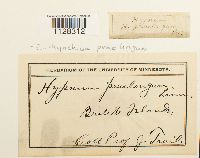 1128312
Hypnum
Eurhynchium praelongum
HERBARIUM OF THE UNIVERSITY OF MINNESOTA.
Hypnum praelongum
Linn.
British Islands.
Coll. Prof. J. Trail.